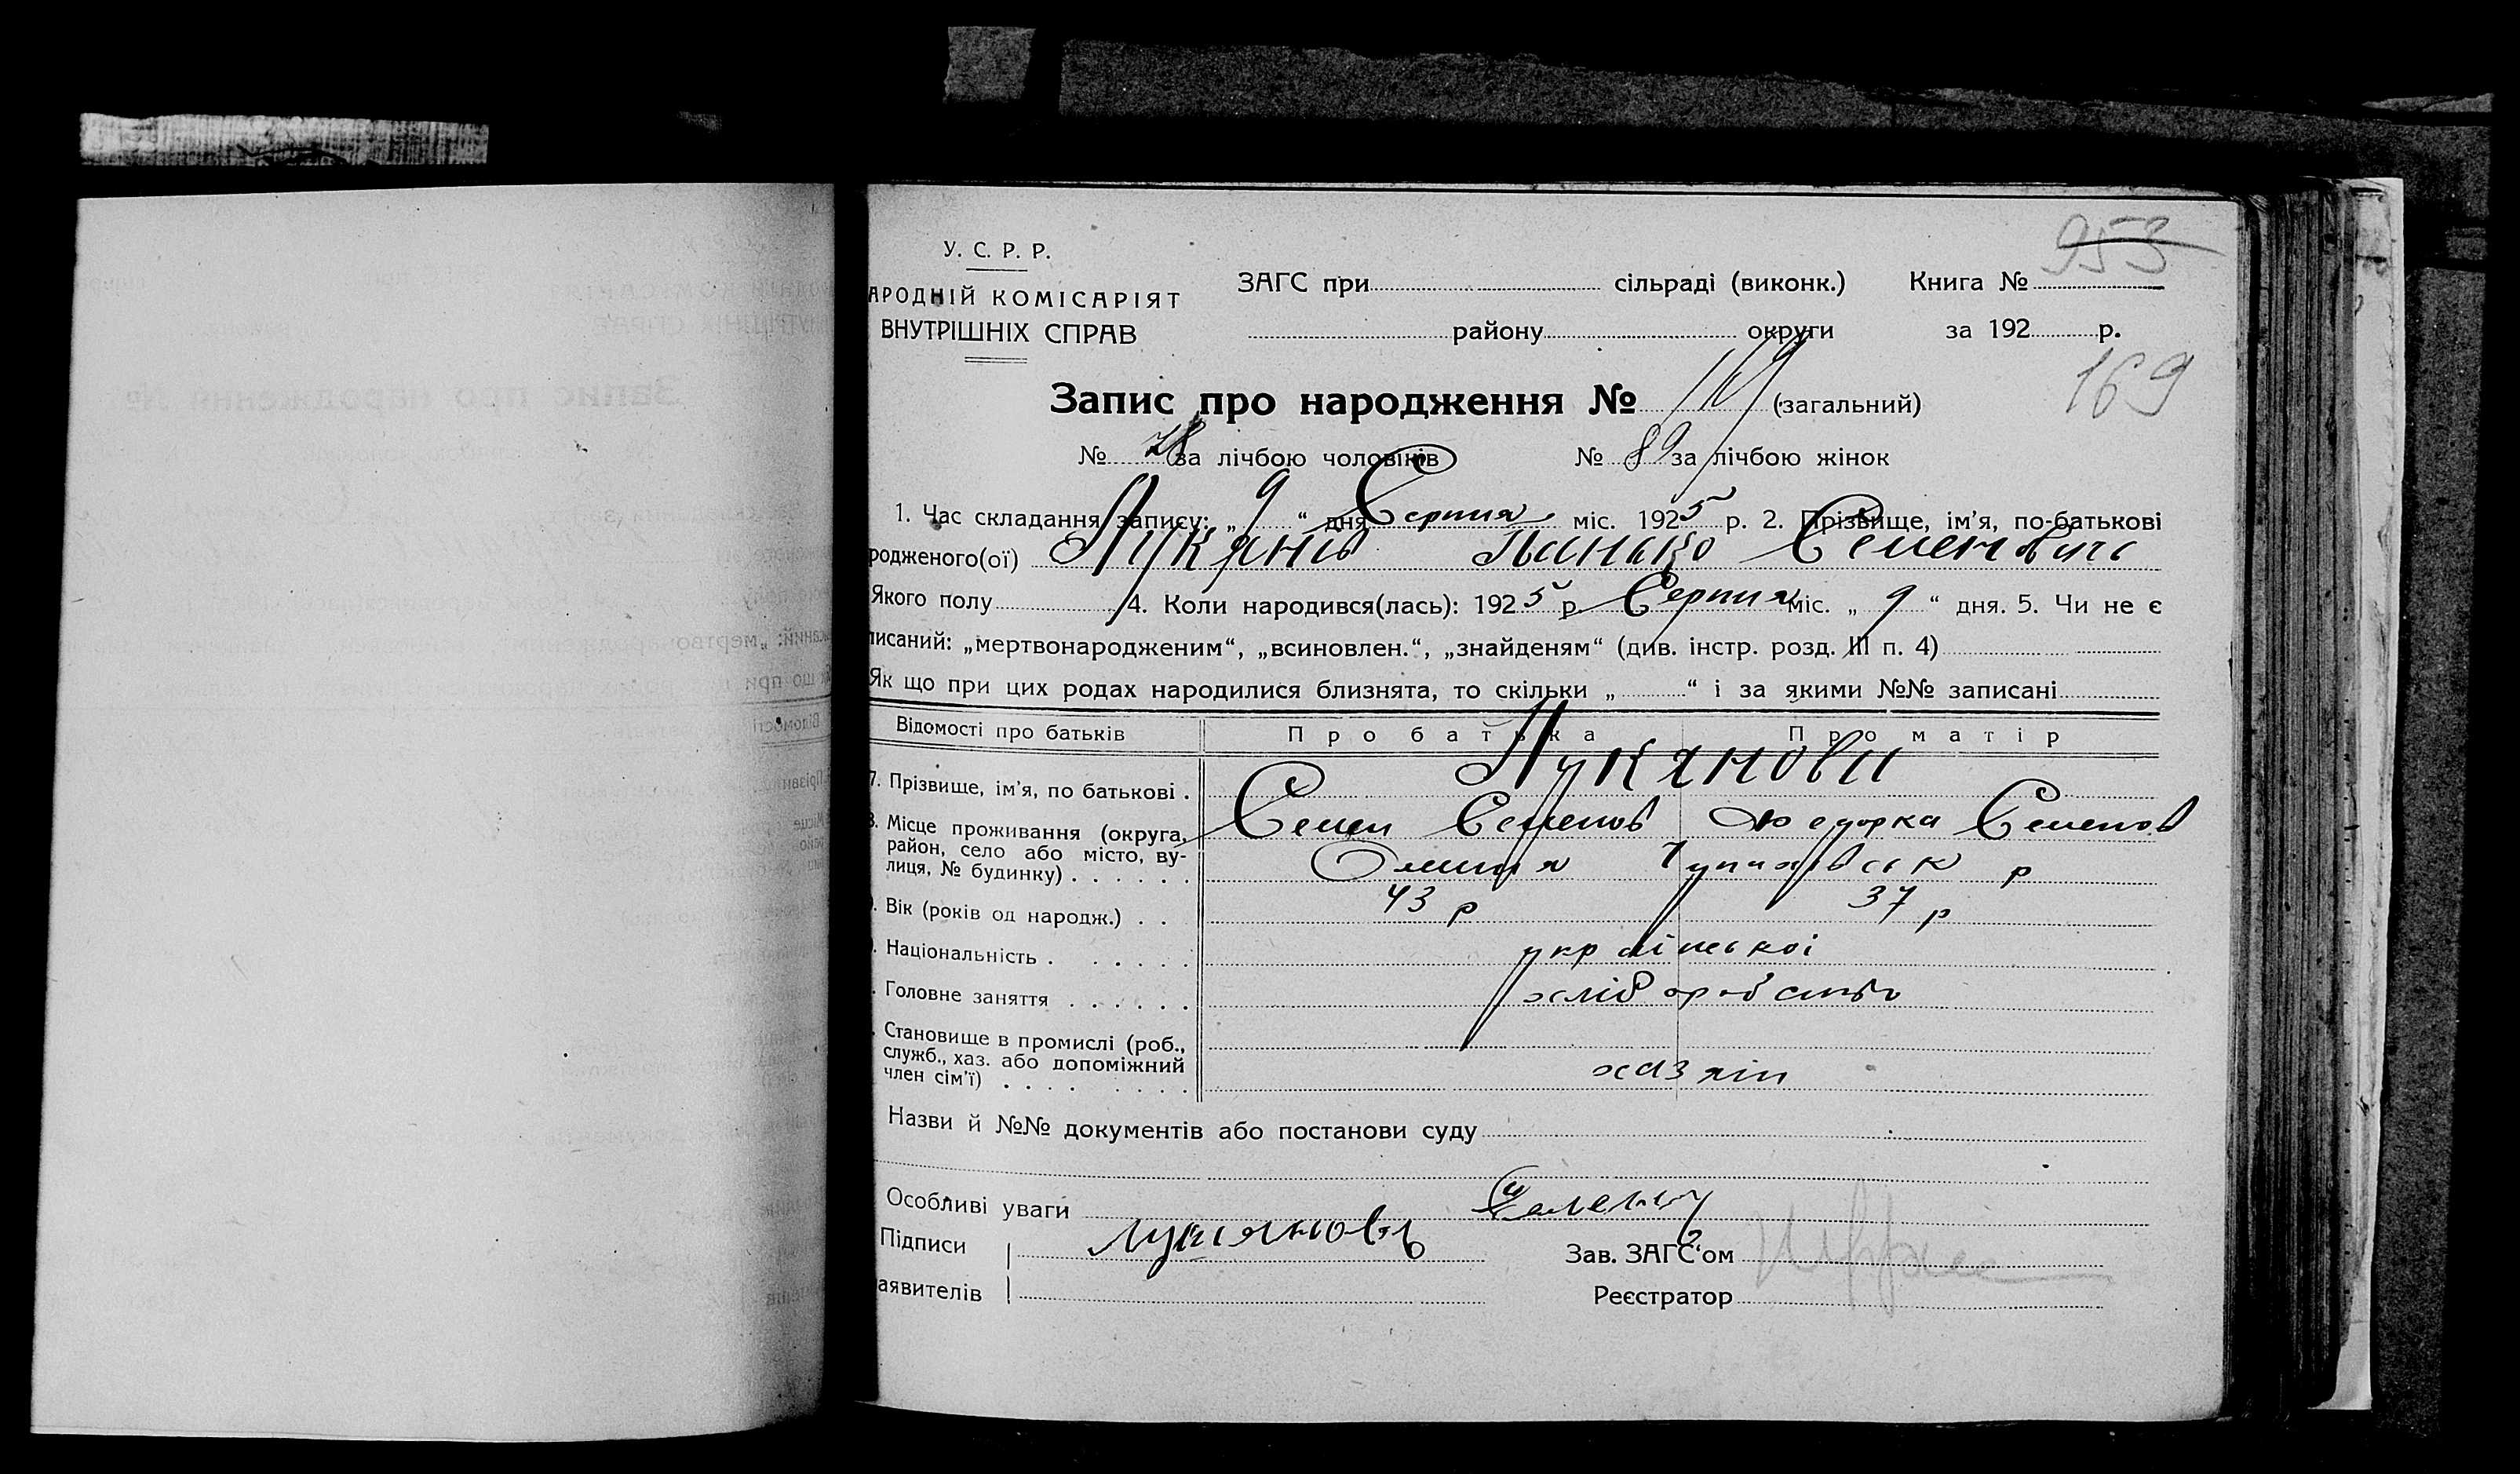 953
У. С. Р. Р.
АРОДНІЙ КОМІСАРІЯТ
ВНУТРІШНІХ СПРАВ
ЗАГС при сільраді (виконк.) Книга №
району округи за 192 р.
169
Запис про народження № 169 (загальний)
№ за лічбою чоловіків № 89 за лічбою жінок
1. Час складання запису: „ 9 “ дня Серпня міс. 1925 р. 2. Прізвище, ім'я, по-батькові
родженого(ої) Лукянов Панько Семенович
Якого полу 4. Коли народився(лась): 1925 р. Серпня міс. „ 9 “ дня. 5. Чи не є
писаний: „мертвонародженим“, „всиновлен.“, „знайденям“ (див. інстр. розд. III п. 4)
Як що при цих родах народилися близнята, то скільки „ “ і за якими №№ записані
Відомості про батьків Про батька Про матір
7. Прізвище, ім'я, по батькові . Лукянови
Семен Семенов Федорка Семенов
8. Місце проживання (округа, район, село або місто, ву-
лиця, № будинку) . . . . . . р
9. Вік (років од народж.) . . 43 р 37 р
Національність . . . . . . української
Головне заняття . . . . . . хліборобство
Становище в промислі (роб.,
служб., хаз. або допоміжний
член сім'ї) . . . . . . . . хазяін
Назви й №№ документів або постанови суду
Особливі уваги
Підписи Зав. ЗАГС'ом
аявителів Реєстратор